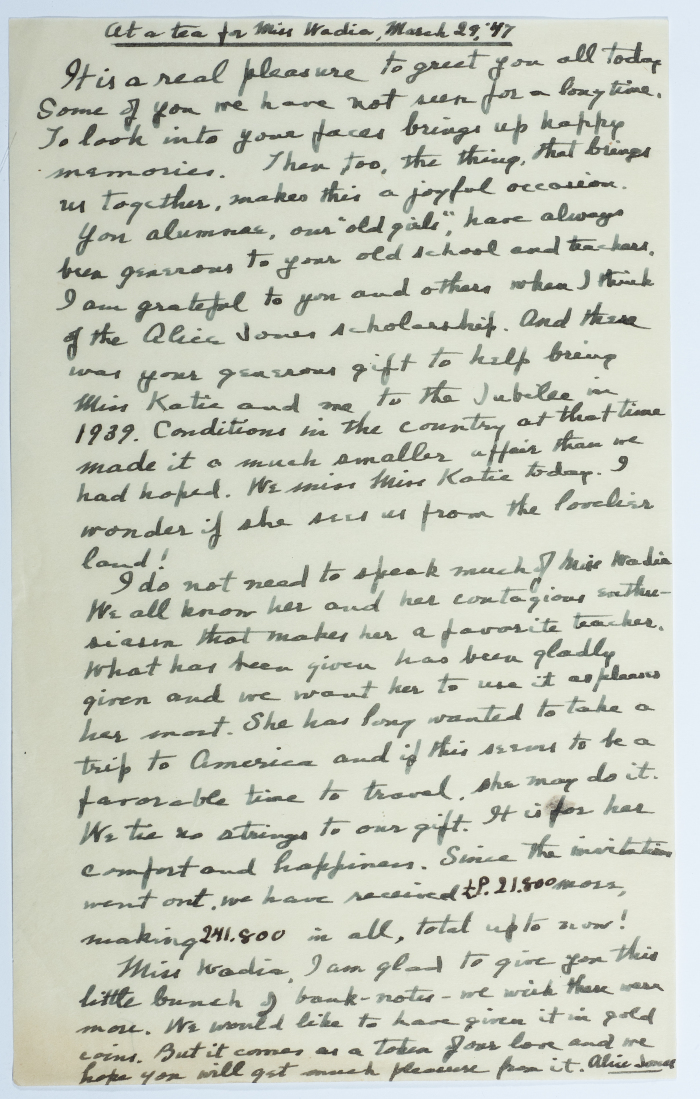 At a tea for Miss Wadia, March 29, '47
It is a real pleasure to greet you all today
Some of you we have not seen for a long time.
To look into your faces brings up happy
memories. Then too, the thing, that brings
us together, makes this a joyful occasion.
You alumnae, our "old girls", have always
been generous to your old school and teachers.
I am grateful to you and others when I think
of the Alice Jones scholarship. And there
was your generous gift to help bring
Miss Katie and me to the Jubilee in
1939. Conditions in the country at that time
made it a much smaller affair than we
had hoped. We miss Miss Katie today. I
wonder if she sees us from the lovelier
land!
I do not need to speak much of Miss Wadia
We all know her and her contagious enthu-
siasm that makes her a favorite teacher.
What has been given has been gladly
given and we want her to use it as pleases
her most. She has long wanted to take a
trip to America and if this seems to be a
favorable time to travel, she may do it.
We tie no strings to our gift. It is for her
comfort and happiness. Since the invitations
went out, we have received £P. 21.800 more,
making 241.800 in all, total up to now!
Miss Wadia, I am glad to give you this
little bunch of bank-notes - we wish there were
more. We would like to have given it in gold
coins. But it comes as a token of our love and we
hope you will get much pleasure from it. Alice Jones